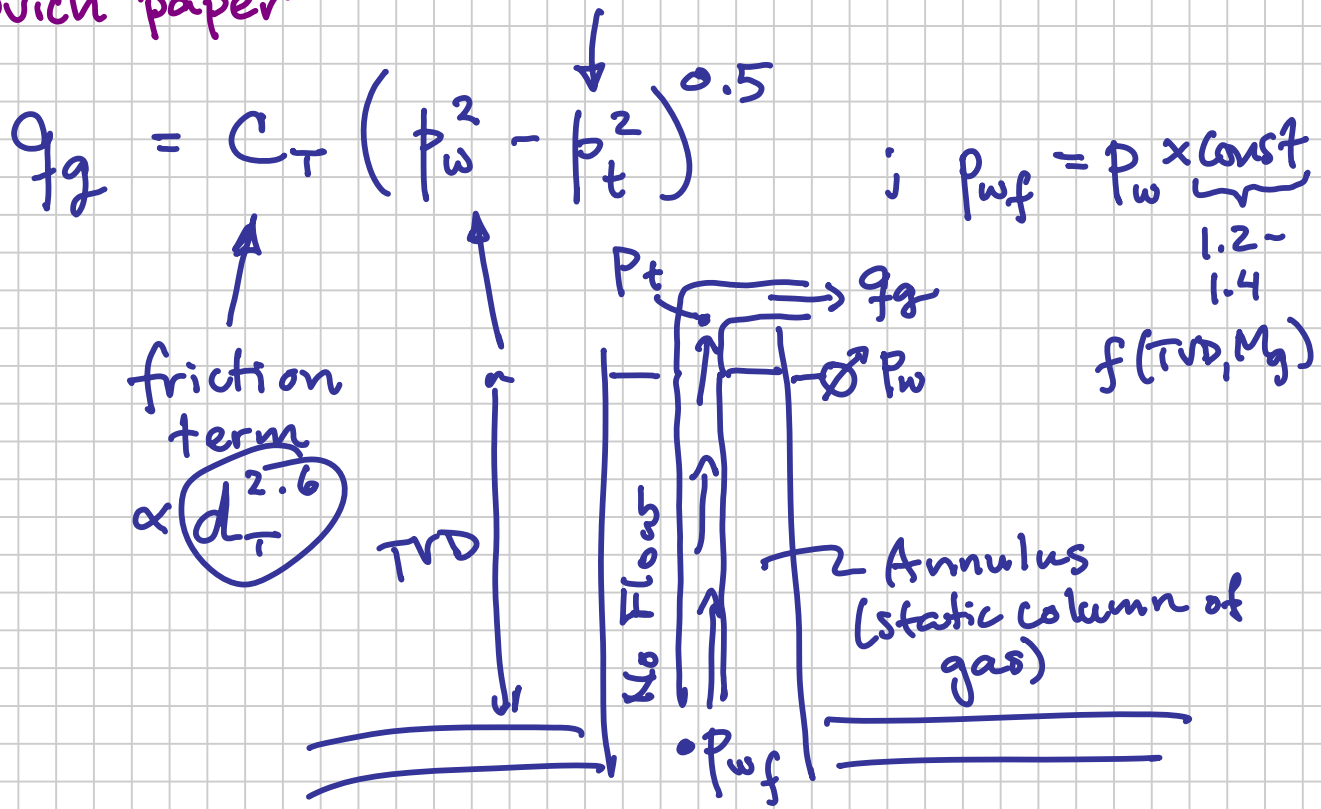 paper
q_g = C_T (p_w^2 - p_t^2)^0.5 ; p_wf = p_w x const
1.2 -
1.4
f(TVD, Mg)
P_t
q_g
P_w
friction
term
∝ d_T^2.6
TVD
No Flow
Annulus
(static column of
gas)
P_wf